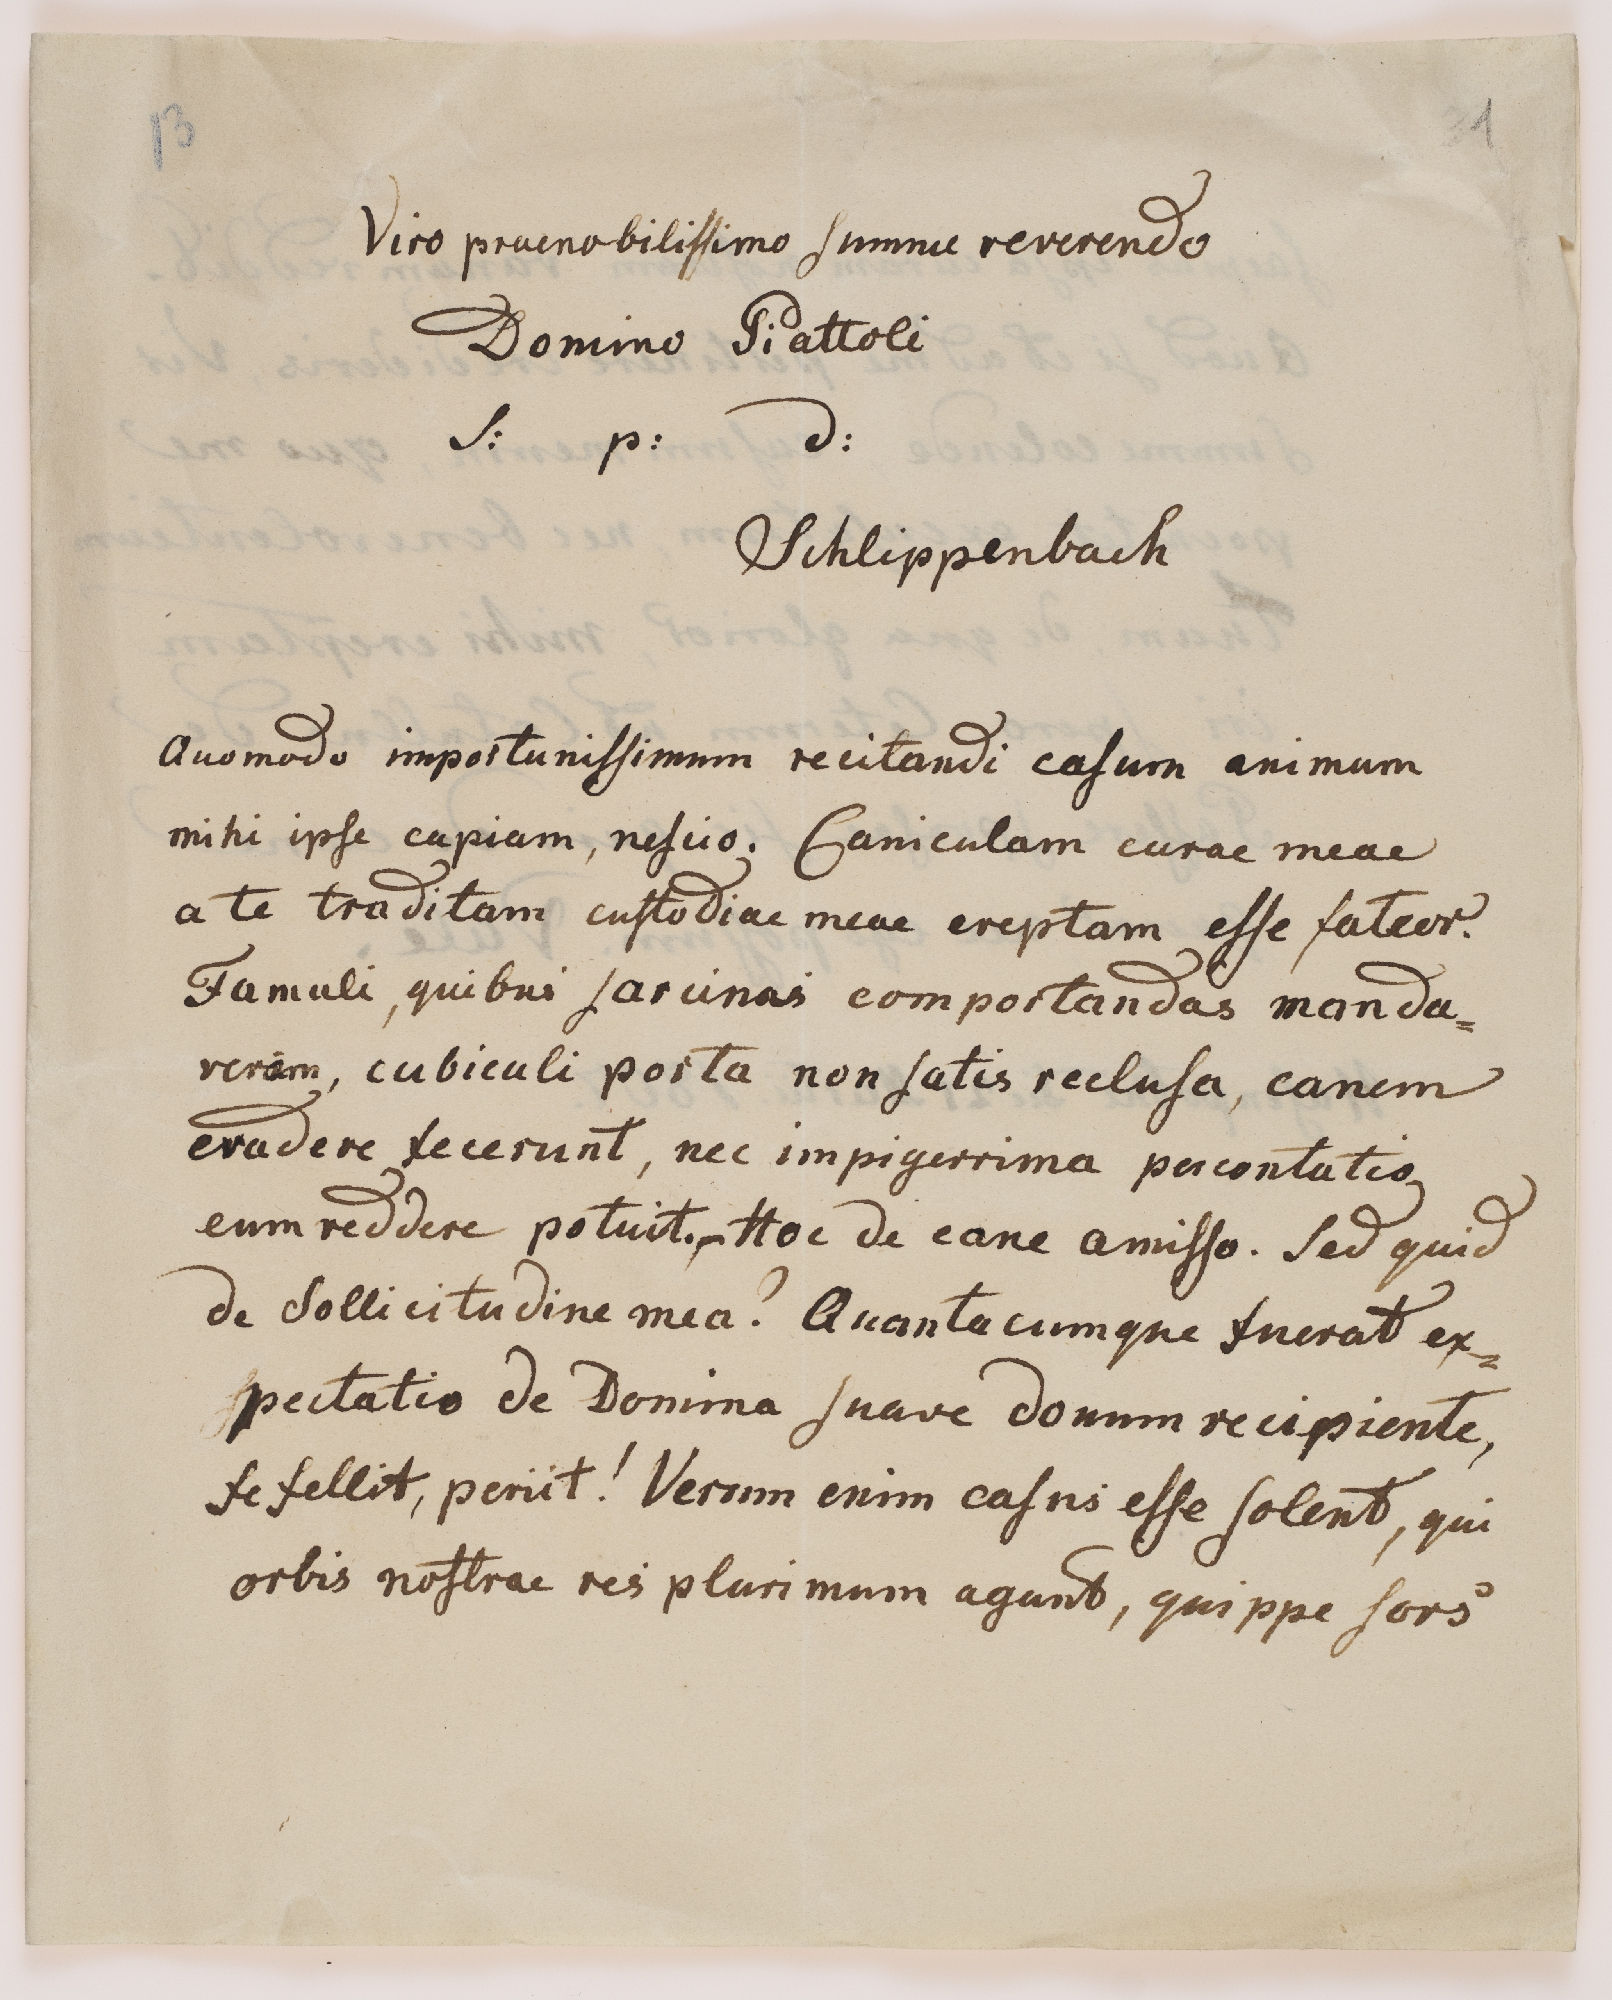 13
31
Viro praenobilissimo summe reverendo
Domino Piattoli
S: p: d:
Schlippenbach
Quomodo importunissimum recitandi casum animum
mihi ipse capiam, nescio. Caniculam curae meae
a te traditam custodiae meae ereptam esse fateor.
Famuli, quibus sarcinas comportandas manda=
veram, cubiculi porta non satis reclusa, canem
evadere fecerunt, nec impigerrima percontatio
eum reddere potuit. – Hoc de cane amisso. Sed quid
de Sollicitudine mea? Quantacumque fuerat ex=
spectatio de Domina suave donum recipiente,
fefellit, periit! Verum enim casus esse solent, qui
orbis nostrae res plurimum agunt, quippe sors